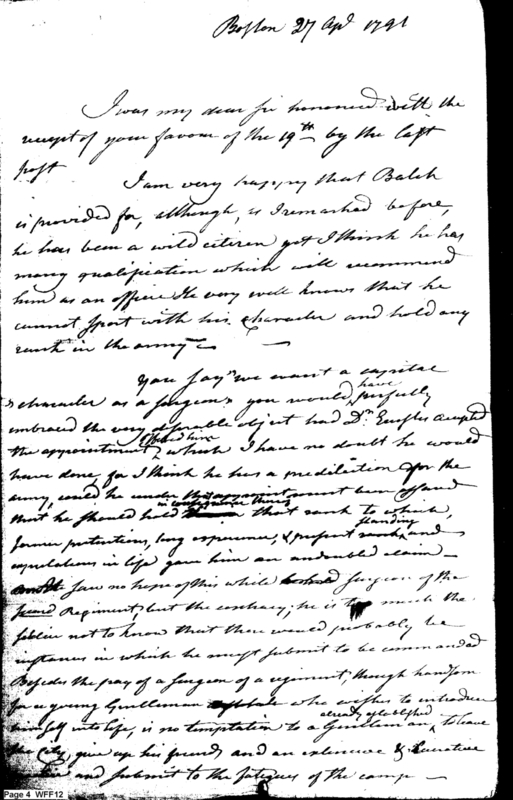 Boston 27 Apl 1791
I was my dear sir honoured with the
receipt of your favour of the 19th by the last
post
I am very happy that Balch
is provided for, although, as I remarked before,
he has been a wild citizen yet I think he has
many qualification which will recommend
him as an officer He very well knows that he
cannot sport with his character and hold any
rank in the army —
You say "we want a capital
character as a surgeon" you would have perfectly
embraced the very desirable object had Dr. Eustis accepted
the appointment offered him which I have no doubt he would
have done, for I think he has a predilection for the
army, could he
that he should hold in that rank to which,
former pretentions, long experience, & present standing and
expectations in life gave him an undoubted claim —
saw no hope of this while surgeon of the
second Regiment, but the contrary; he is too much the
soldier not to know that there would probably be
instances in which he must submit to be commanded
Besides the pay of a surgeon of a regiment, though handsom
for a young Gentleman who wishes to introduce
himself into life, is no temptation to a Gentleman already established to leave
the City, give up his friends and an extensive & lucrative
and submit to the fatigues of the camp —
Page 4 WFF12